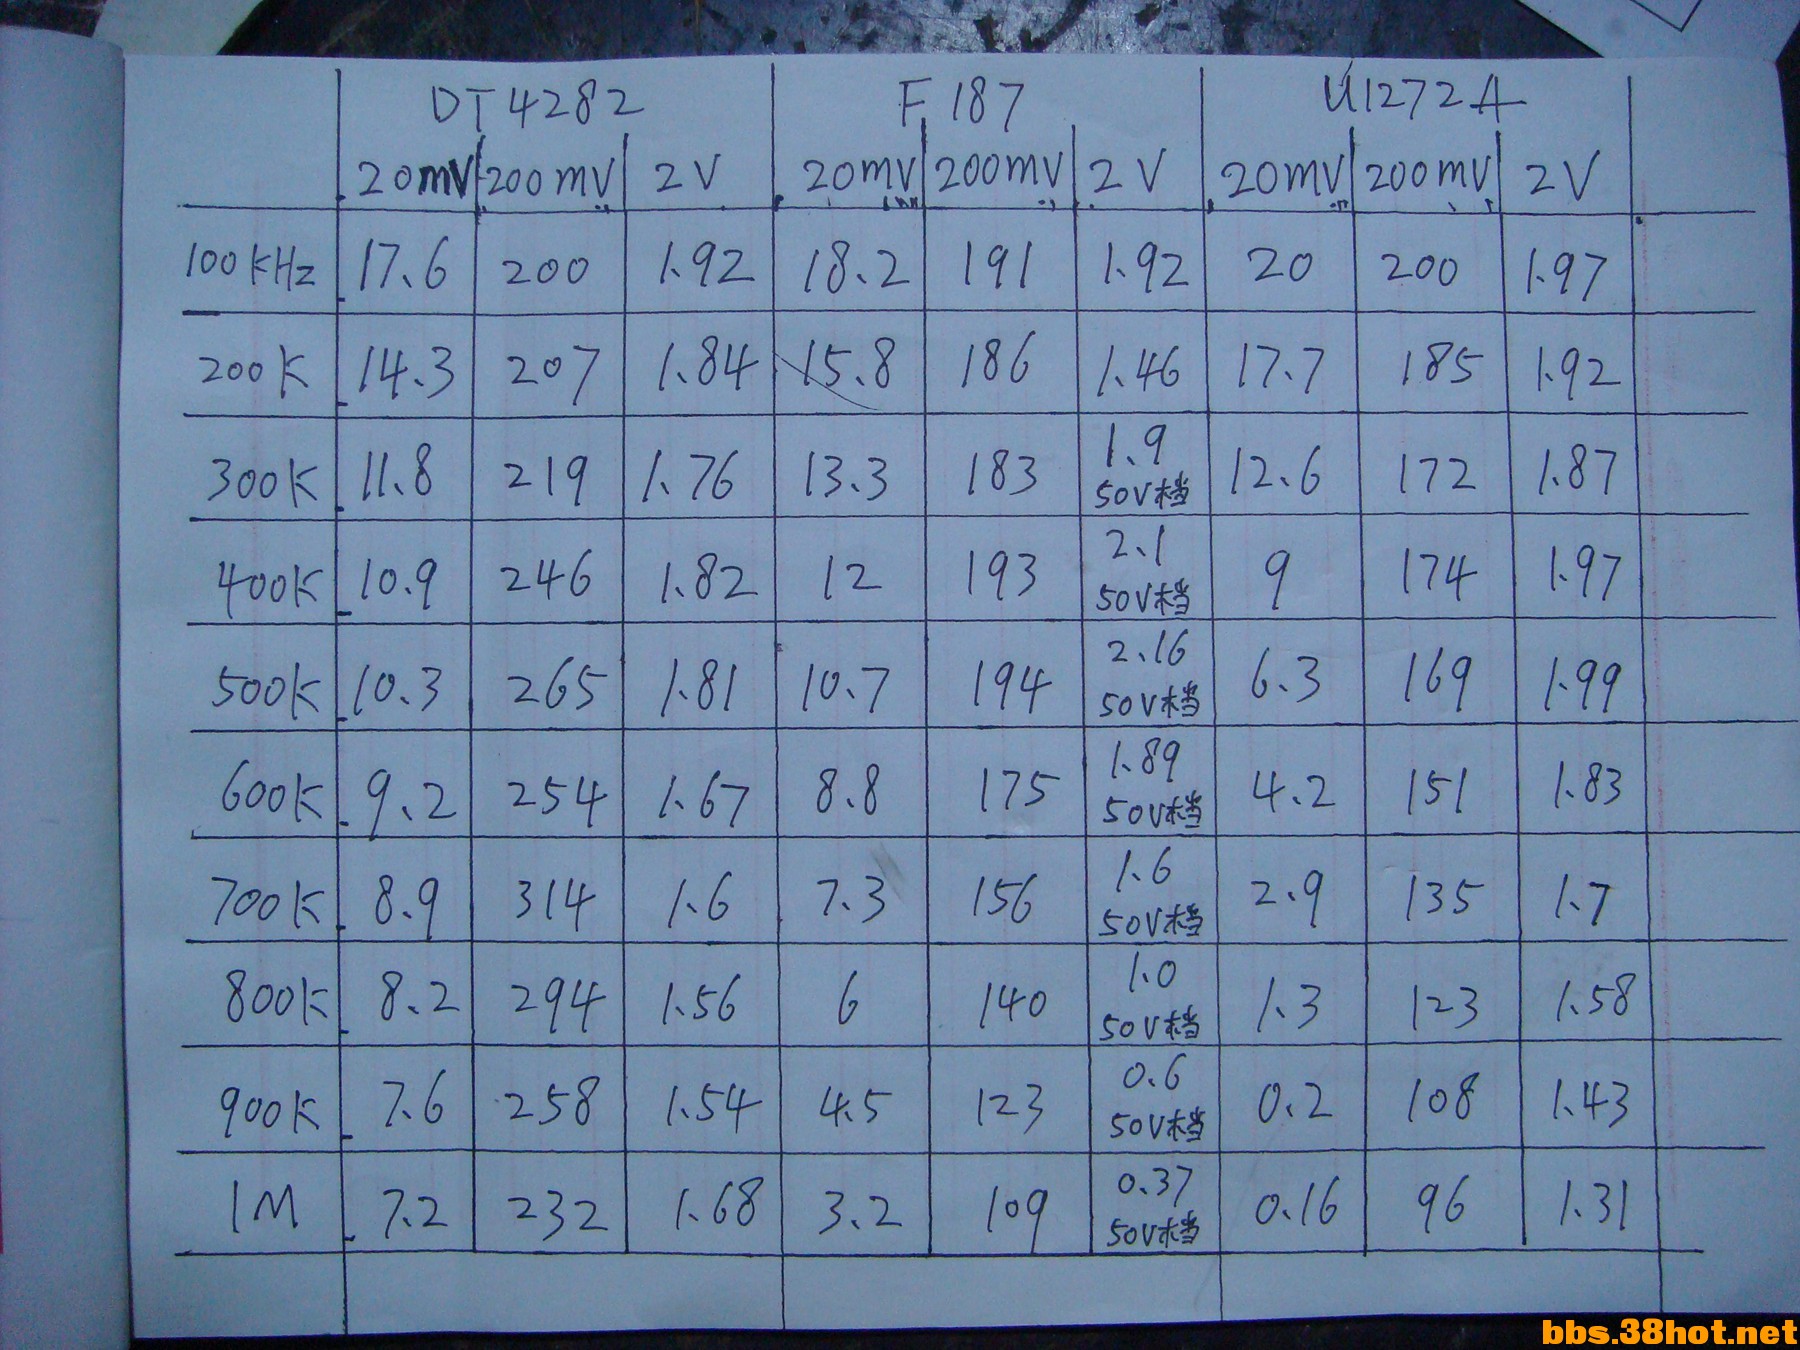 DT4282 F187 U1272A
20mV 200mV 2V 20mV 200mV 2V 20mV 200mV 2V
100KHz 17.6 200 1.92 18.2 191 1.92 20 200 1.97
200K 14.3 207 1.84 15.8 186 1.46 17.7 185 1.92
300K 11.8 219 1.76 13.3 183 1.9 50V档 12.6 172 1.87
400K 10.9 246 1.82 12 193 2.1 50V档 9 174 1.97
500K 10.3 265 1.81 10.7 194 2.16 50V档 6.3 169 1.99
600K 9.2 254 1.67 8.8 175 1.89 50V档 4.2 151 1.83
700K 8.9 314 1.6 7.3 156 1.6 50V档 2.9 135 1.7
800K 8.2 294 1.56 6 140 1.0 50V档 1.3 123 1.58
900K 7.6 258 1.54 4.5 123 0.6 50V档 0.2 108 1.43
1M 7.2 232 1.68 3.2 109 0.37 50V档 0.16 96 1.31
bbs.38hot.net